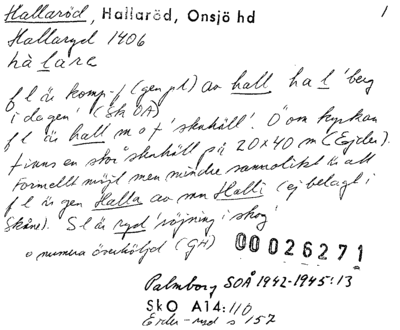 Hallaröd, Hallaröd, Onsjö hd 1
Hallaryd 1406
hàlare
f l är komp-f (gen pl) av hall hal 'berg
i dagen' (Sk OA)
f l är hall m o f 'stenhäll'. Ö om kyrkan
finns en stor stenhäll på 20×40 m (Ejder).
Formellt möjl men mindre sannolikt är att
f l är gen Halla av mn Halli (ej belagt i
Skåne). S l är ryd 'röjning i skog'
o numera överhöljd (GH) 00026271
Palmborg SOÅ 1942-1945:13
SkO A14:110
Ejder -ryd s 157